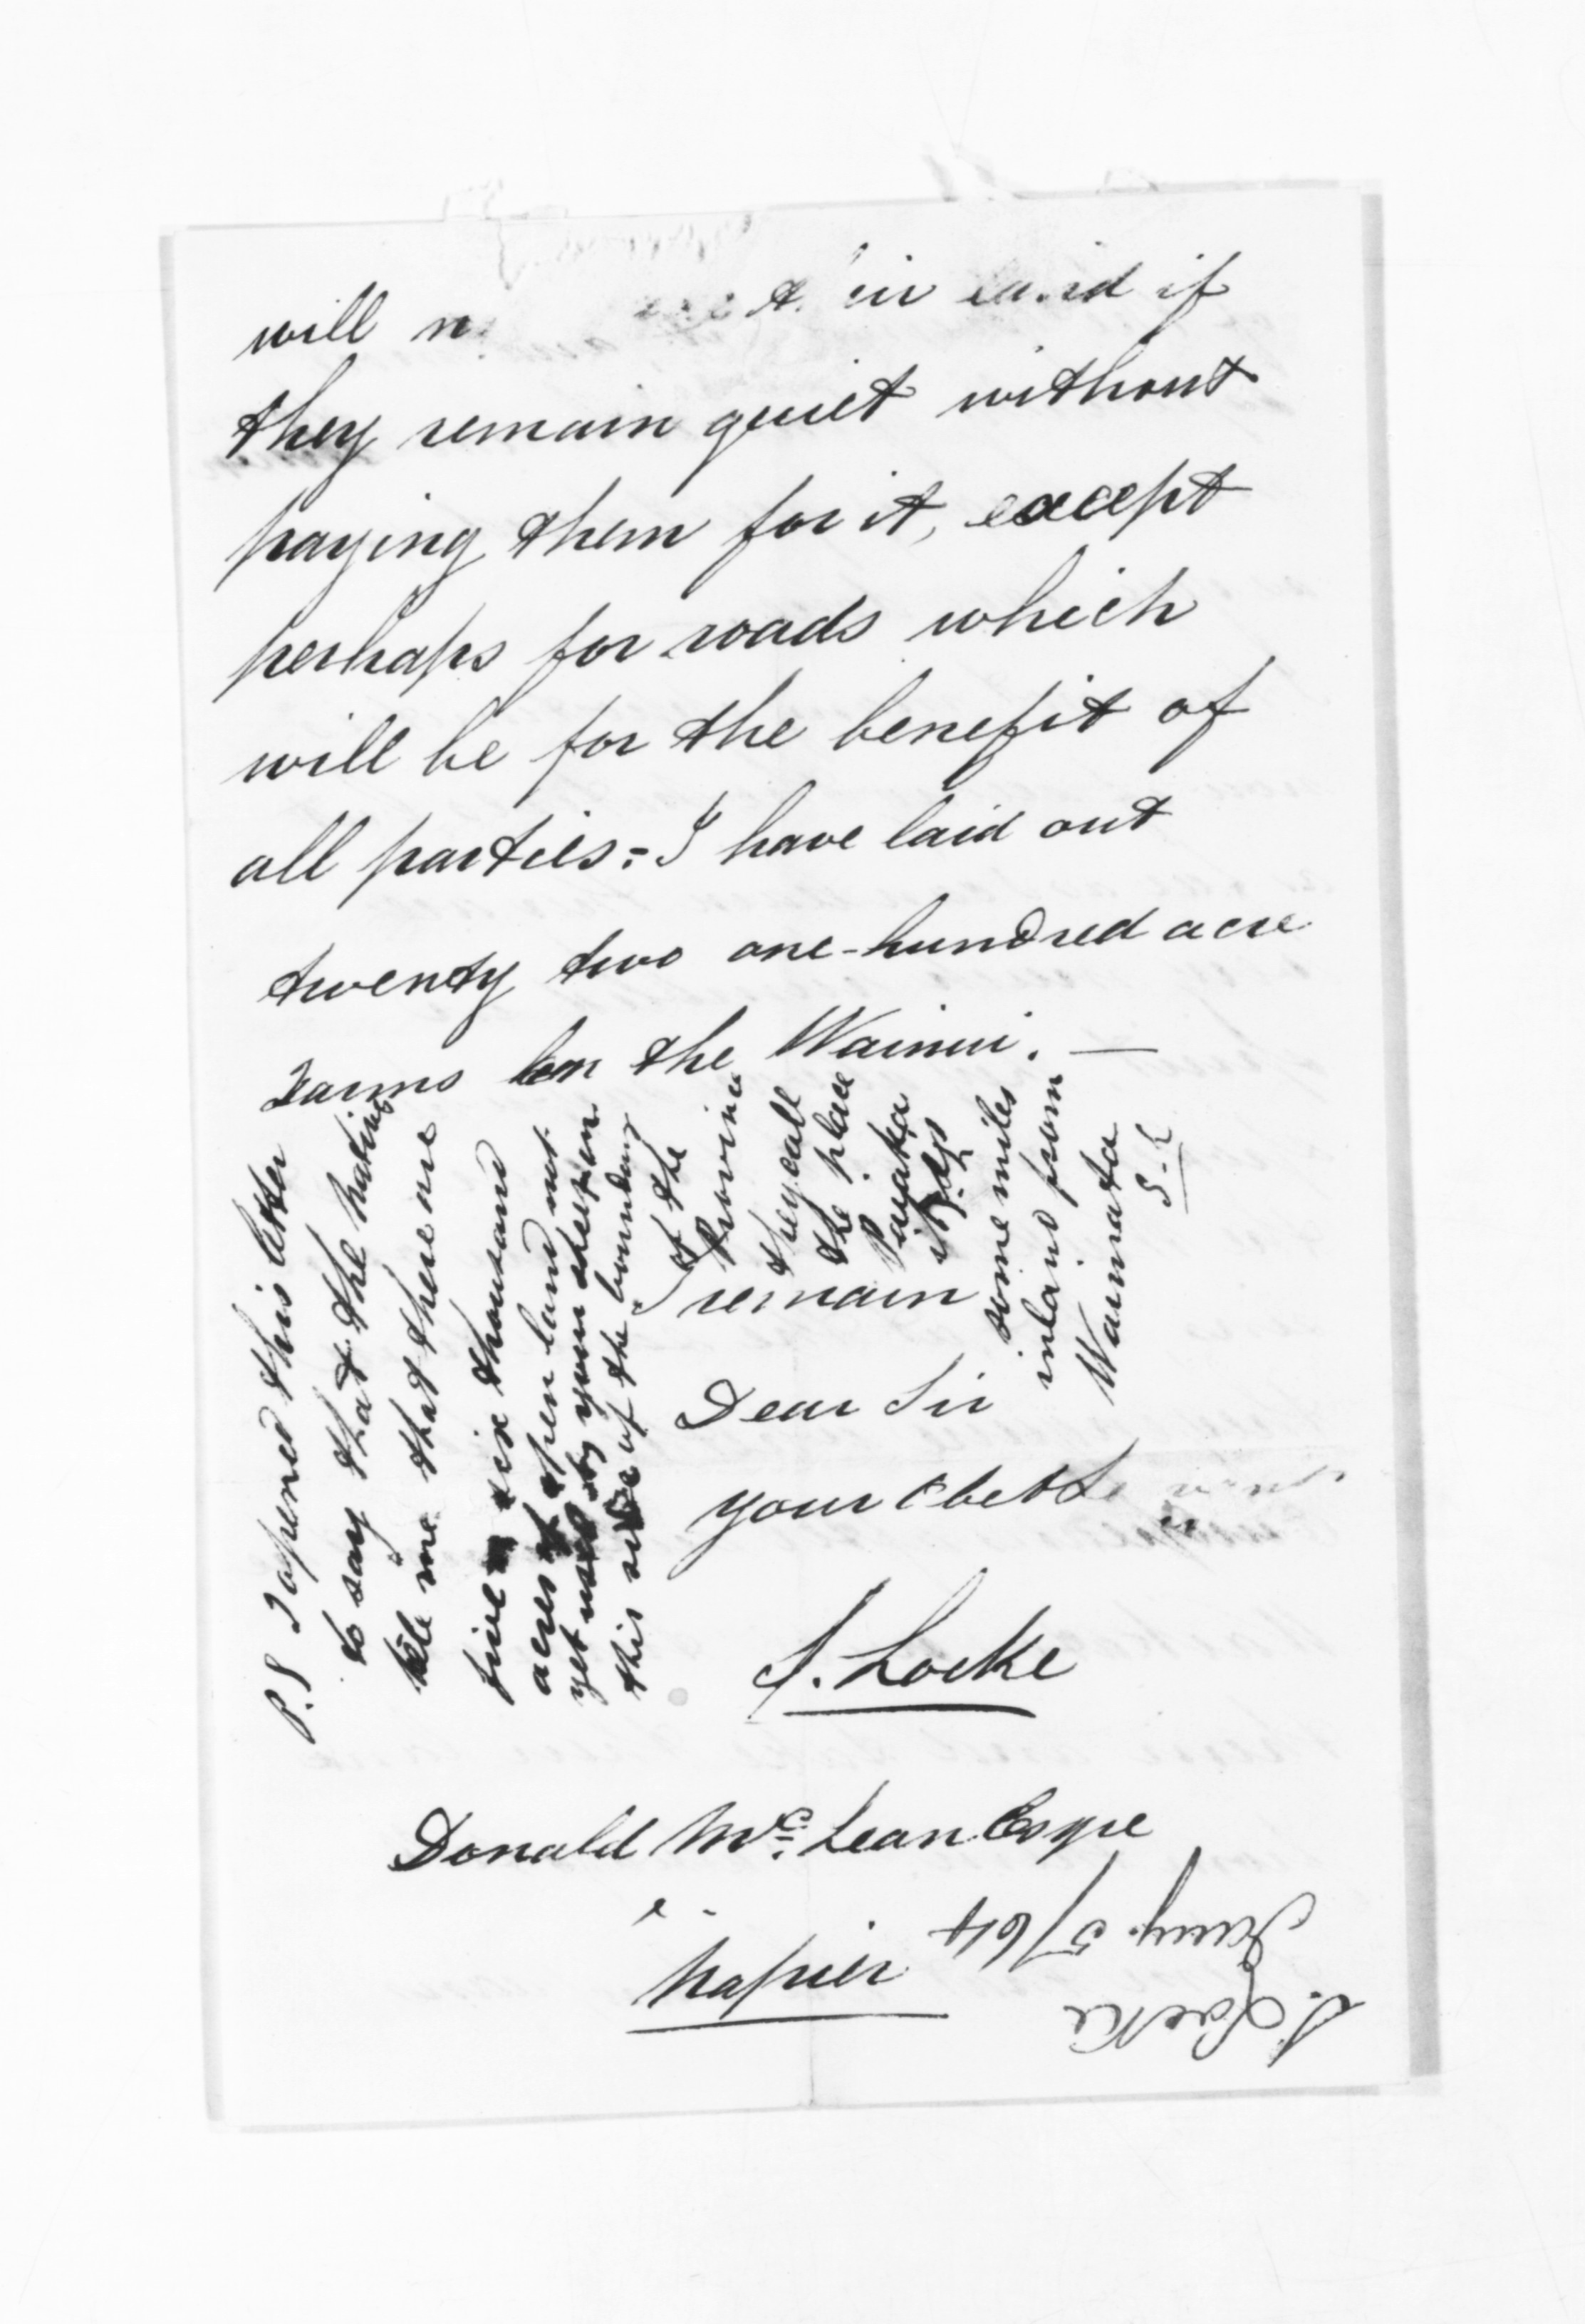 will their land if
they remain quiet without
paying them for it, except
perhaps for roads which
will be for the benefit of
all parties = I have laid out
twenty two one-hundred acre
farms on the Wainui. —
I remain
Dear Sir
your obedt
S. Locke
Donald McLean Esqre
Napier
P.S I opened this letter
to say that the natives
tele me that there are
five six thousand
acres of open land not
yet used by your sheep on
this side of the boundary
of the
Province
they call
the place
some miles
inland from
Waimata
S-L
S. Locke
Jany. 5/64